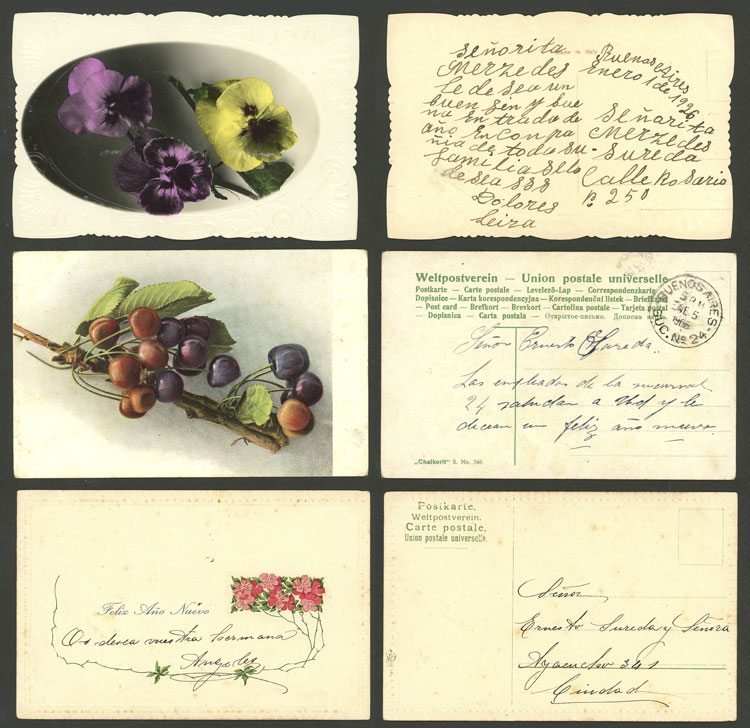 Made in Italy
Señorita
Merzedes
te desea un
buen fin y bue
na entrada de
año En conpa
ñia de toda su
familia selo
desea SSS
Dolores
Leira
Buenos Aires
Enero 1 de 1926
Señarita
Merzedes
Sureda
Calle Rosario
n. 250
Weltpostverein — Union postale universelle
Postkarte — Carte postale — Levelező-Lap — Correspondenzkarte
Dopisnice — Karta korespondencyjna — Korespondenční lístek — Briefkaart
— Post card — Brefkort — Brevkort — Cartolina postale — Tarjeta postal
— Dopisnica — Carta postala — Открытое письмо.
BUENOS AIRES
5
SUC. No. 24
Señor Ernesto Sureda.
Las empleados de la sucursal
24 saludan a Vd y le
decean un feliz año nuevo.
„Chalkorit" S. No. 346
Feliz Año Nuevo
Os desea vuestra hermana
Angeles
Postkarte.
Weltpostverein.
Carte postale.
Union postale universelle.
Señor
Ernesto Sureda y Señora
Ayacucho 341
Ciudad